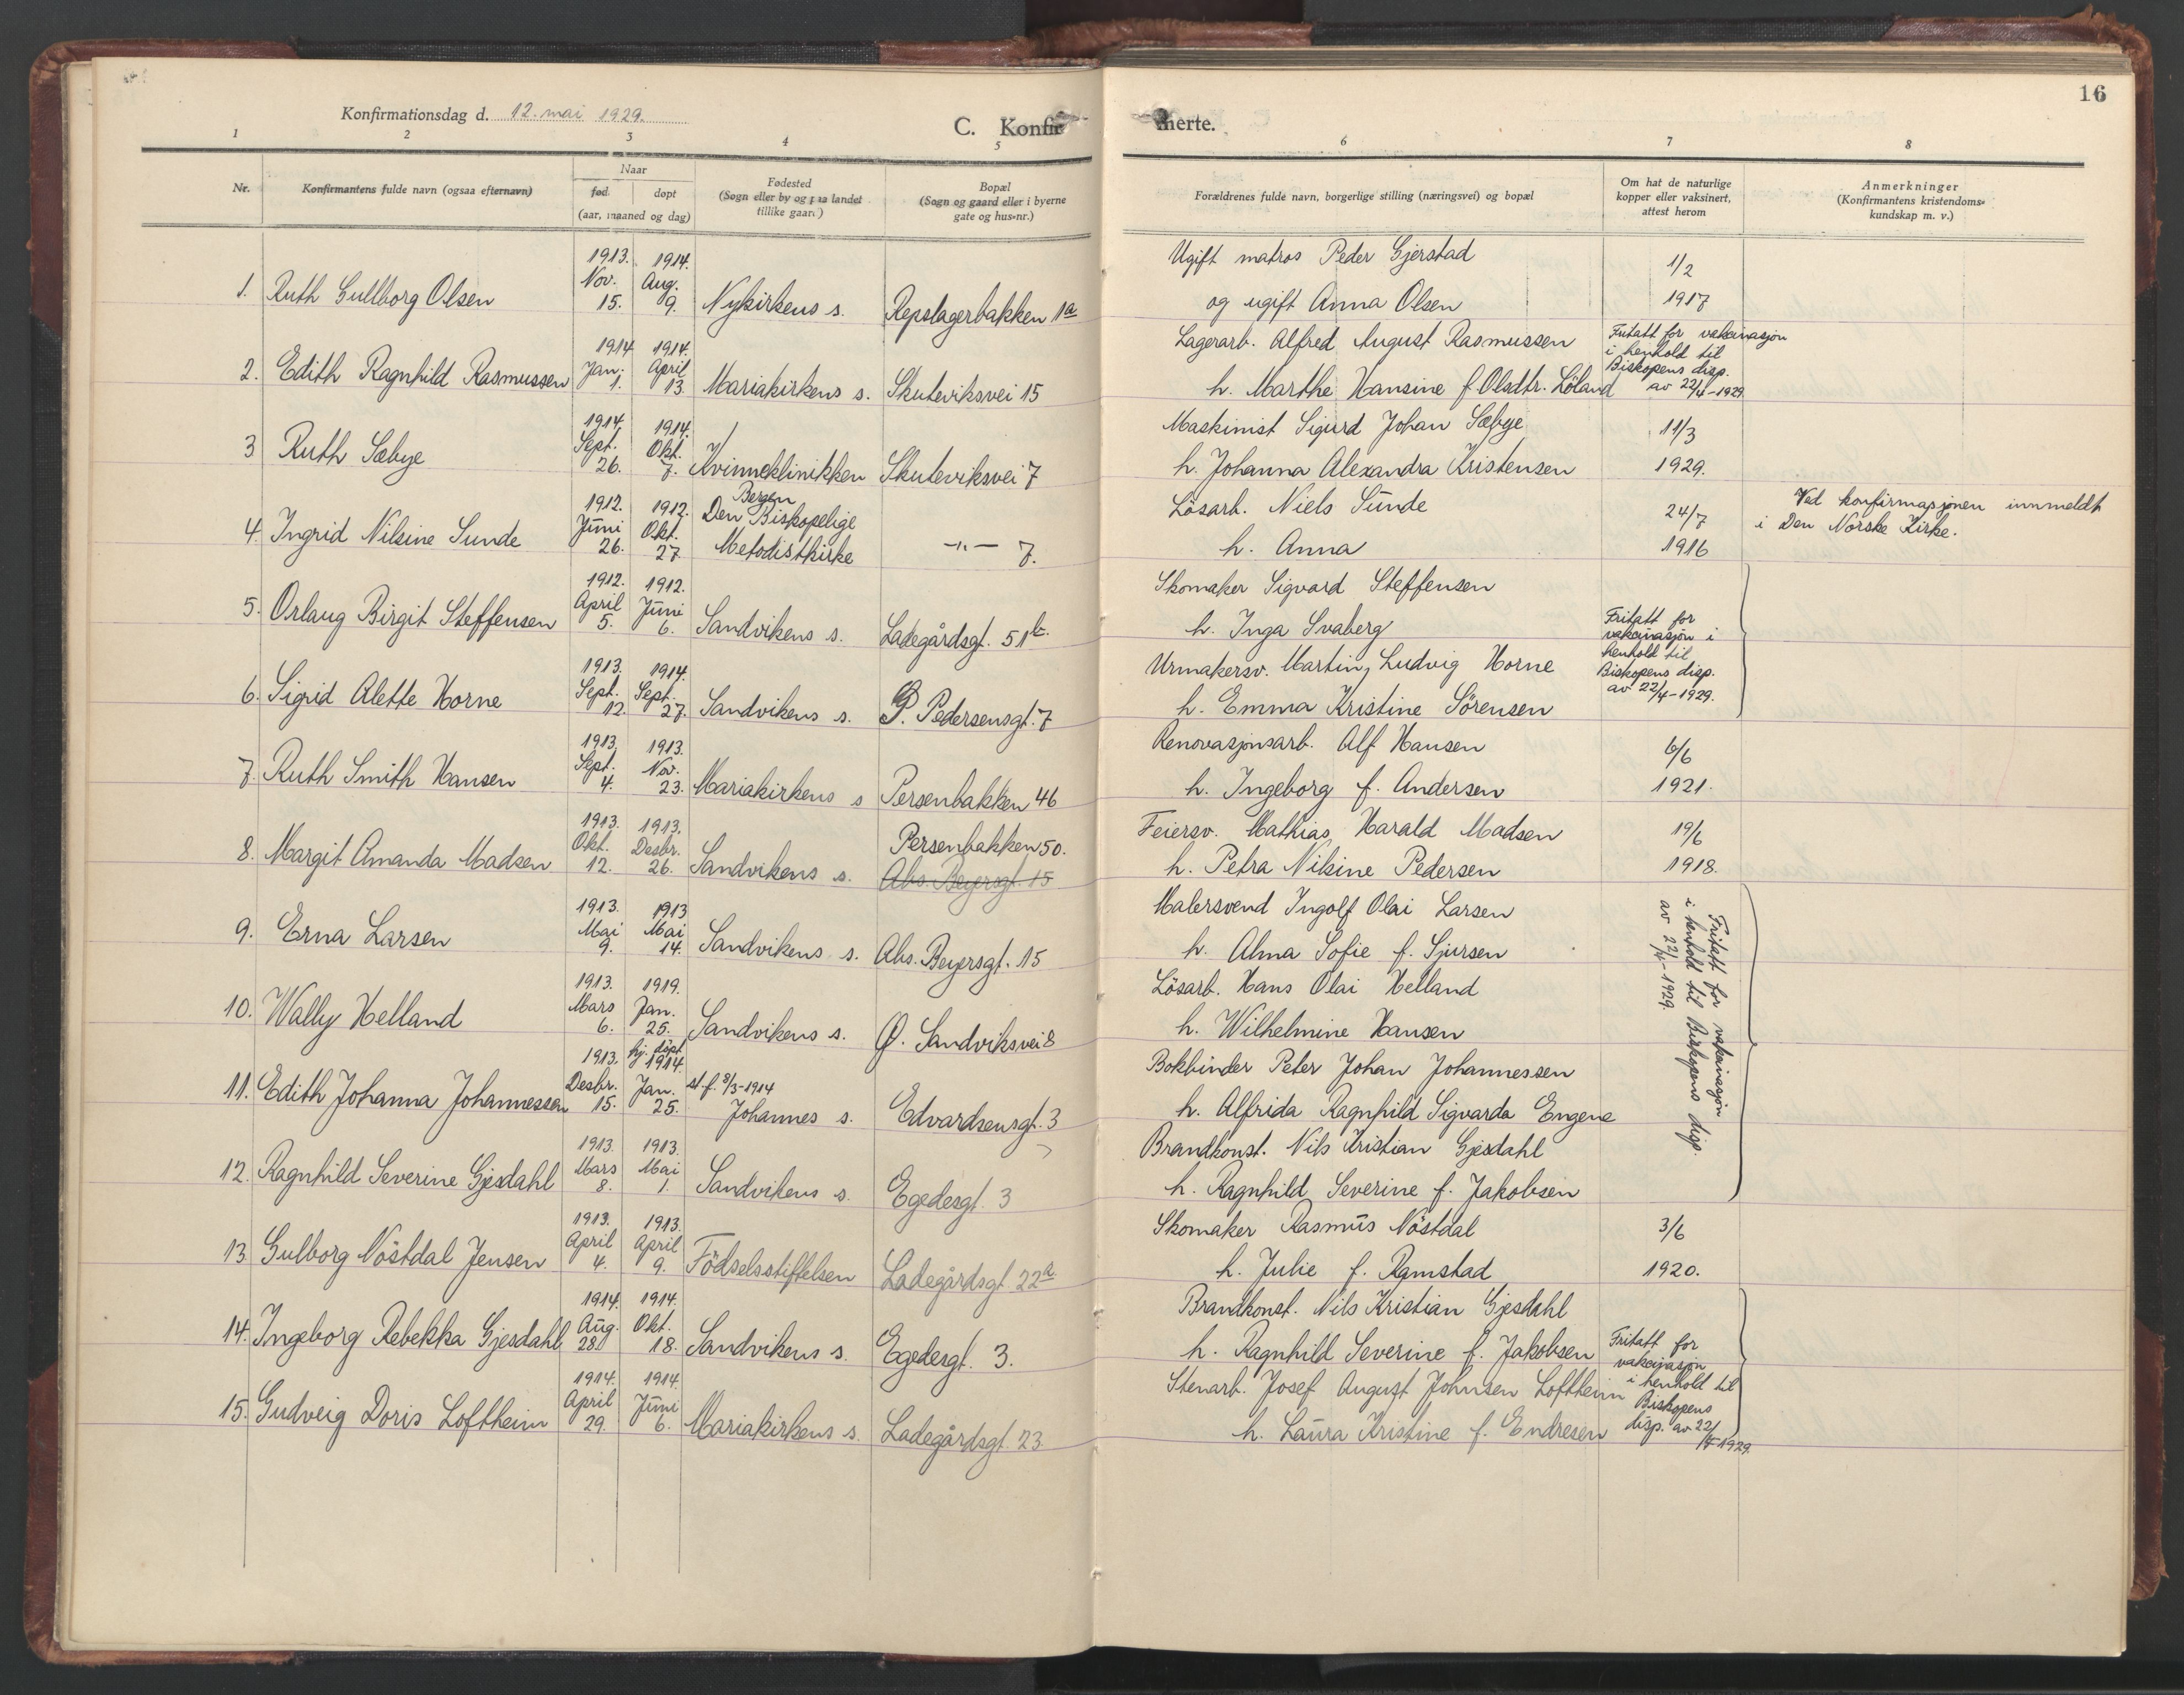 16
Konfirmationsdag d. 12. mai 1929.
C. Konfirmerte.
1 2 3 4 5 6 7 8
Nr.
Konfirmantens fulde navn (ogsaa efternavn)
Naar
fød. døpt
(aar, maaned og dag)
Fødested
(Sogn eller by og paa landet
tillike gaard)
Bopæl
(Sogn og gaard eller i byerne
gate og hus-nr.)
Forældrenes fulde navn, borgerlige stilling (næringsvei) og bopæl
Om hat de naturlige
kopper eller vaksinert,
attest herom
Anmerkninger
(Konfirmantens kristendoms-
kundskap m. v.)
1913. 1914. Ugift matros Peder Gjerstad 1/2
Nov. Aug.
1. Ruth Gullborg Olsen 15. 9. Nykirkens s. Repslagerbakken 1a og ugift Anna Olsen 1917
1914 1914. Lagerarb. Alfred August Rasmussen Fritatt for vakcinasjon
Jan. April i henhold til
Biskopens disp.
2. Edith Ragnhild Rasmussen 1. 13. Mariakirkens s. Skuteviksvei 15 h. Marthe Hansine f. Olsdtr. Löland av 22/4-1929
1914. 1914. Maskinist Sigurd Johan Sæbye 11/3
Sept. Okt.
3 Ruth Sæbye 26. 7. Kvinneklinikken Skuteviksvei 7 h. Johanna Alexandra Kristensen 1929.
Bergen
1912. 1912. Den Biskopelige Lösarb. Niels Sunde 24/7 Ved konfirmasjonen innmeldt
Juni Okt. i Den Norske Kirke.
4. Ingrid Nilsine Sunde 26. 27. Metodistkirke —"— 7. h. Anna 1916
1912. 1912. Skomaker Sigvard Steffensen
April Juni
5. Orlaug Birgit Steffensen 5. 6. Sandvikens s. Ladegårdsgt. 51b. h. Inga Svaberg Fritatt for
vakcinasjon i
henhold til
1913. 1914. Urmakersv. Martin Ludvig Horne Biskopens disp.
Sept. Sept. av 22/4-1929.
6. Sigrid Alette Horne 12. 27. Sandvikens s. P. Pedersensgt. 7 h. Emma Kristine Sörensen
1913. 1913. Renovasjonsarb. Alf Hansen 6/6
Sept. Nov.
7. Ruth Smith Hansen 4. 23. Mariakirkens s Persenbakken 46 h. Ingeborg f. Andersen 1921.
1913. 1913. Persenbakken 50. Feiersv. Mathias Harald Madsen 19/6
Okt. Desbr.
8. Margit Amanda Madsen 12. 26. Sandvikens s. Abs. Beyersgt. 15 h. Petra Nilsine Pedersen 1918.
1913. 1913 Malersvend Ingolf Olai Larsen
Mai Mai
9. Erna Larsen 9. 14. Sandvikens s. Abs. Beyersgt. 15 h. Alma Sofie f. Sjursen
Fritatt for vakcinasjon
i henhold til Biskopens disp.
av 22/4-1929.
1913. 1919. Lösarb. Hans Olai Helland
Mars Jan.
10. Wally Helland 6. 25. Sandvikens s. Ø. Sandviksvei 8 h. Wilhelmine Hansen
hj. döpt
1913. 1914. Bokbinder Peter Johan Johannessen
Desbr. Jan. st.f. 8/3-1914
11. Edith Johanna Johannessen 15. 25. Johannes s. Edvardsensgt. 3 h. Alfrida Ragnhild Sigvarda Engene
1913. 1913. Brandkonst. Nils Kristian Gjesdahl
Mars Mai
12. Ragnhild Severine Gjesdahl 8. 1. Sandvikens s. Egedesgt. 3 h. Ragnhild Severine f. Jakobsen
1913. 1913. Skomaker Rasmus Nöstdal 3/6
April April
13. Gulborg Nöstdal Jensen 4. 9. Födselsstiftelsen Ladegårdsgt. 22a. h. Julie f. Ramstad 1920.
1914. 1914. Brandkonst. Nils Kristian Gjesdahl
Aug. Okt.
14. Ingeborg Rebekka Gjesdahl 28. 18. Sandvikens s. Egedesgt. 3. h. Ragnhild Severine f. Jakobsen Fritatt for
vakcinasjon
1914. 1914. Stenarb. Josef August Johnsen Loftheim i henhold til
April Juni Biskopens
15. Gudveig Doris Loftheim 29. 6. Mariakirkens s. Ladegårdsgt. 23 h. Laura Kristine f. Endresen disp. av 22/4-1929.